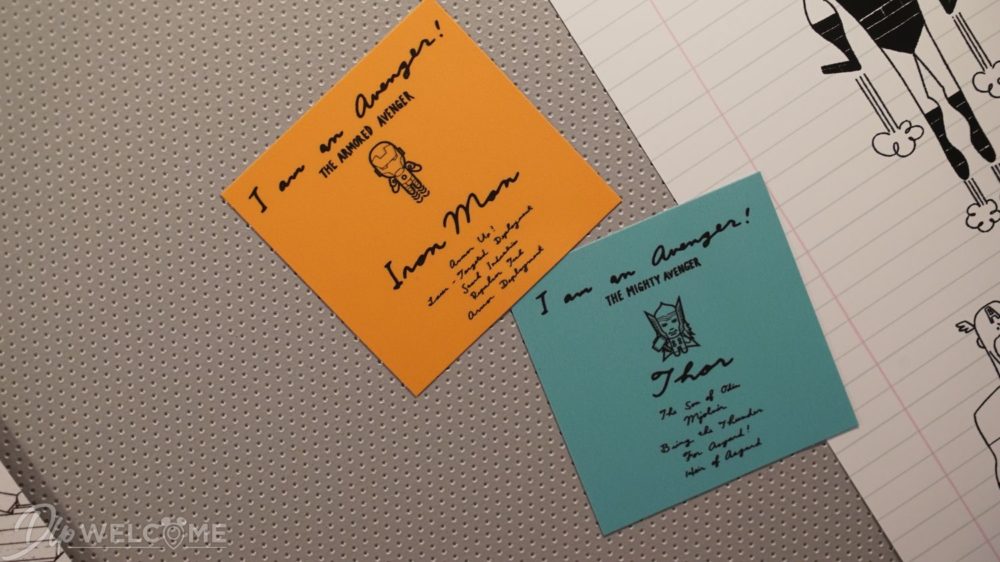 I am an Avenger!
THE ARMORED AVENGER
Iron Man
Armor Up!
Laser-Targeted Deployment
Stark Industries
Repulsor Tech
Armor Deployment
I am an Avenger!
THE MIGHTY AVENGER
Thor
The Son of Odin
Mjolnir
Bring the Thunder
For Asgard!
Heir of Asgard
Dlp WELCOME